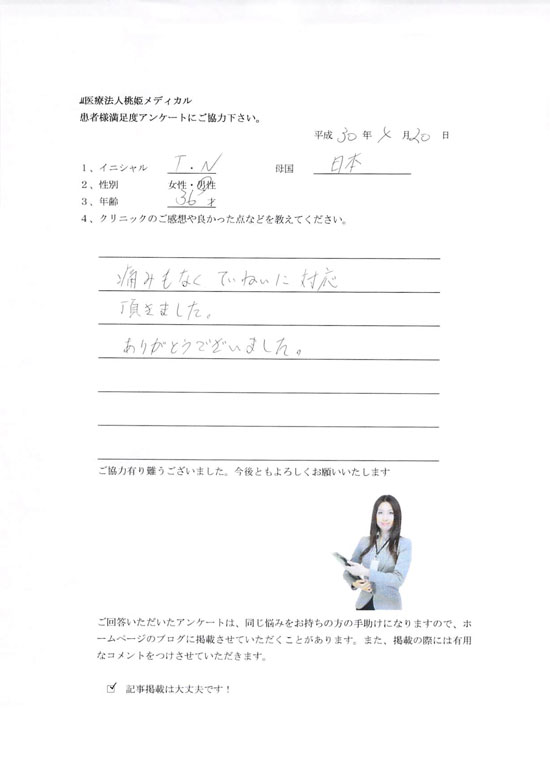 医療法人桃姫メディカル
患者様満足度アンケートにご協力下さい。
平成 30 年 月 20 日
1、イニシャル T・N 母国 日本
2、性別 女性・男性
3、年齢 36 才
4、クリニックのご感想や良かった点などを教えてください。
痛みもなくていねいに対応
頂きました。
ありがとうございました。
ご協力有り難うございました。今後ともよろしくお願いいたします
ご回答いただいたアンケートは、同じ悩みをお持ちの方の手助けになりますので、ホ
ームページのブログに掲載させていただくことがあります。また、掲載の際には有用
なコメントをつけさせていただきます。
☑ 記事掲載は大丈夫です！